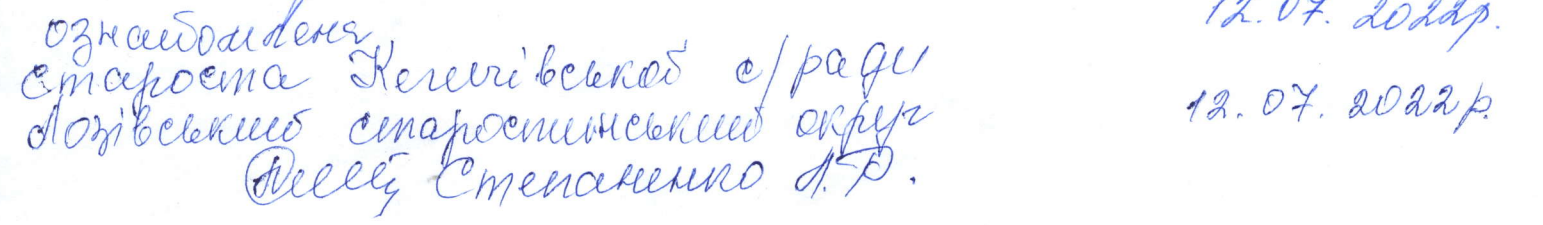 ознайомлена 12.07.2022р.
Староста Кегичівської с/ради
Лозівський старостинський округ 12.07.2022р.
Степаненко А.Р.